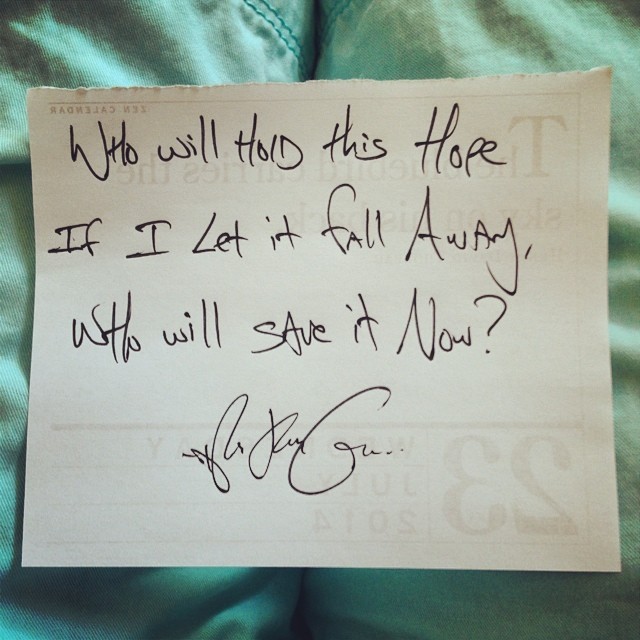 ZEN CALENDAR
Who will HOLD this Hope
If I Let it fall Away,
Who will save it Now?
The bluebird carries the
sky on his back
23
WEDNESDAY
JULY
2014